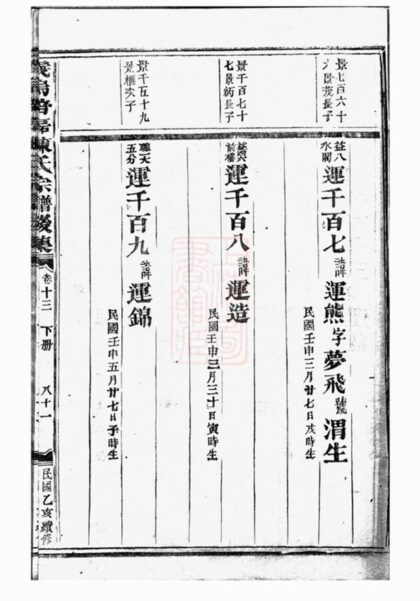 景七百六十
景茂長子
益八
水閣
運千百七諱運熊字夢飛號渭生
民國壬申三月廿七日戌時生
景千百七十
七景炳長子
益癸
前樓
運千百八諱運造
民國壬申三月三十日寅時生
景千五十九
景根次子
五分
運千百九諱運錦
民國壬申五月廿七日子時生
陳氏宗譜
集
卷十三
下册
八十一
民國乙亥續修